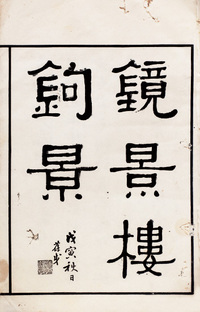 鏡景樓
鉤景
戊寅秋日